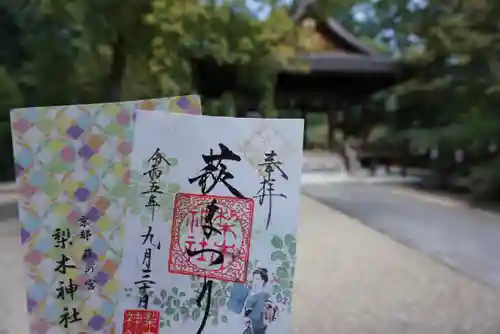 奉拝
萩まつり
梨木神社
令和五年
九月二十日
京都 萩の宮
梨木神社